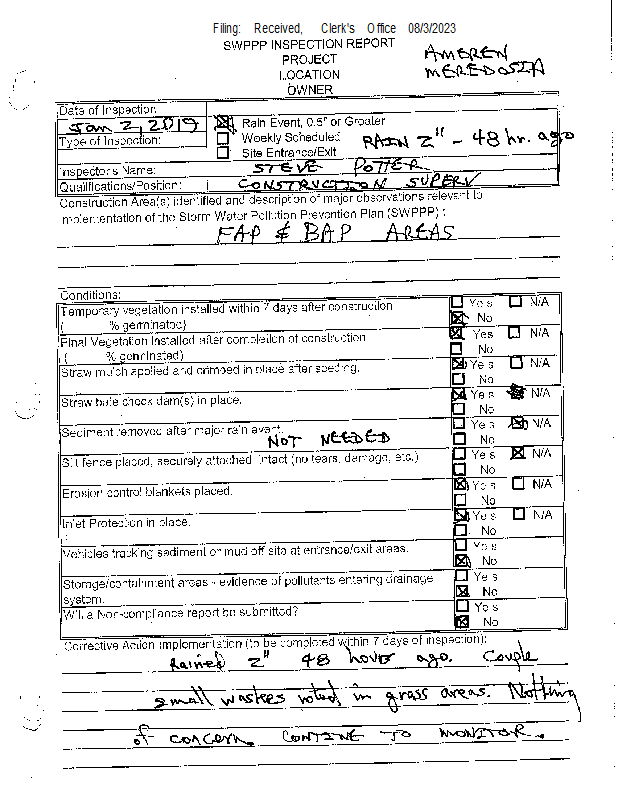 Filing: Received, Clerk's Office 08/3/2023
SWPPP INSPECTION REPORT
PROJECT
LOCATION
OWNER
AMEREN
MEREDOSIA
Date of Inspection:
Jan 2, 2019
Type of Inspection:
Rain Event, 0.5" or Greater
Weekly Scheduled
Site Entrance/Exit
RAIN 2" - 48 hr. ago
Inspector's Name: STEVE POTTER
Qualifications/Position: CONSTRUCTION SUPERV
Construction Area(s) identified and description of major observations relevant to
implementation of the Storm Water Pollution Prevention Plan (SWPPP) :
FAP & BAP AREAS
Conditions:
Temporary vegetation installed within 7 days after construction
( % germinated)
Yes N/A
No
Final Vegetation installed after completion of construction
( % germinated)
Yes N/A
No
Straw mulch applied and crimped in place after seeding.
Yes N/A
No
Straw bale check dam(s) in place.
Yes N/A
No
Sediment removed after major rain event.
NOT NEEDED
Yes N/A
No
Silt fence placed, securely attached, intact (no tears, damage, etc.)
Yes N/A
No
Erosion control blankets placed.
Yes N/A
No
Inlet Protection in place.
Yes N/A
No
Vehicles tracking sediment or mud off site at entrance/exit areas.
Yes
No
Storage/containment areas - evidence of pollutants entering drainage
system.
Yes
No
Will a Non-compliance report be submitted?
Yes
No
Corrective Action Implementation (to be completed within 7 days of inspection):
Rained 2" 48 hours ago. Couple
small washes noted in grass areas. Nothing
of concern. CONTINE TO MONITOR.